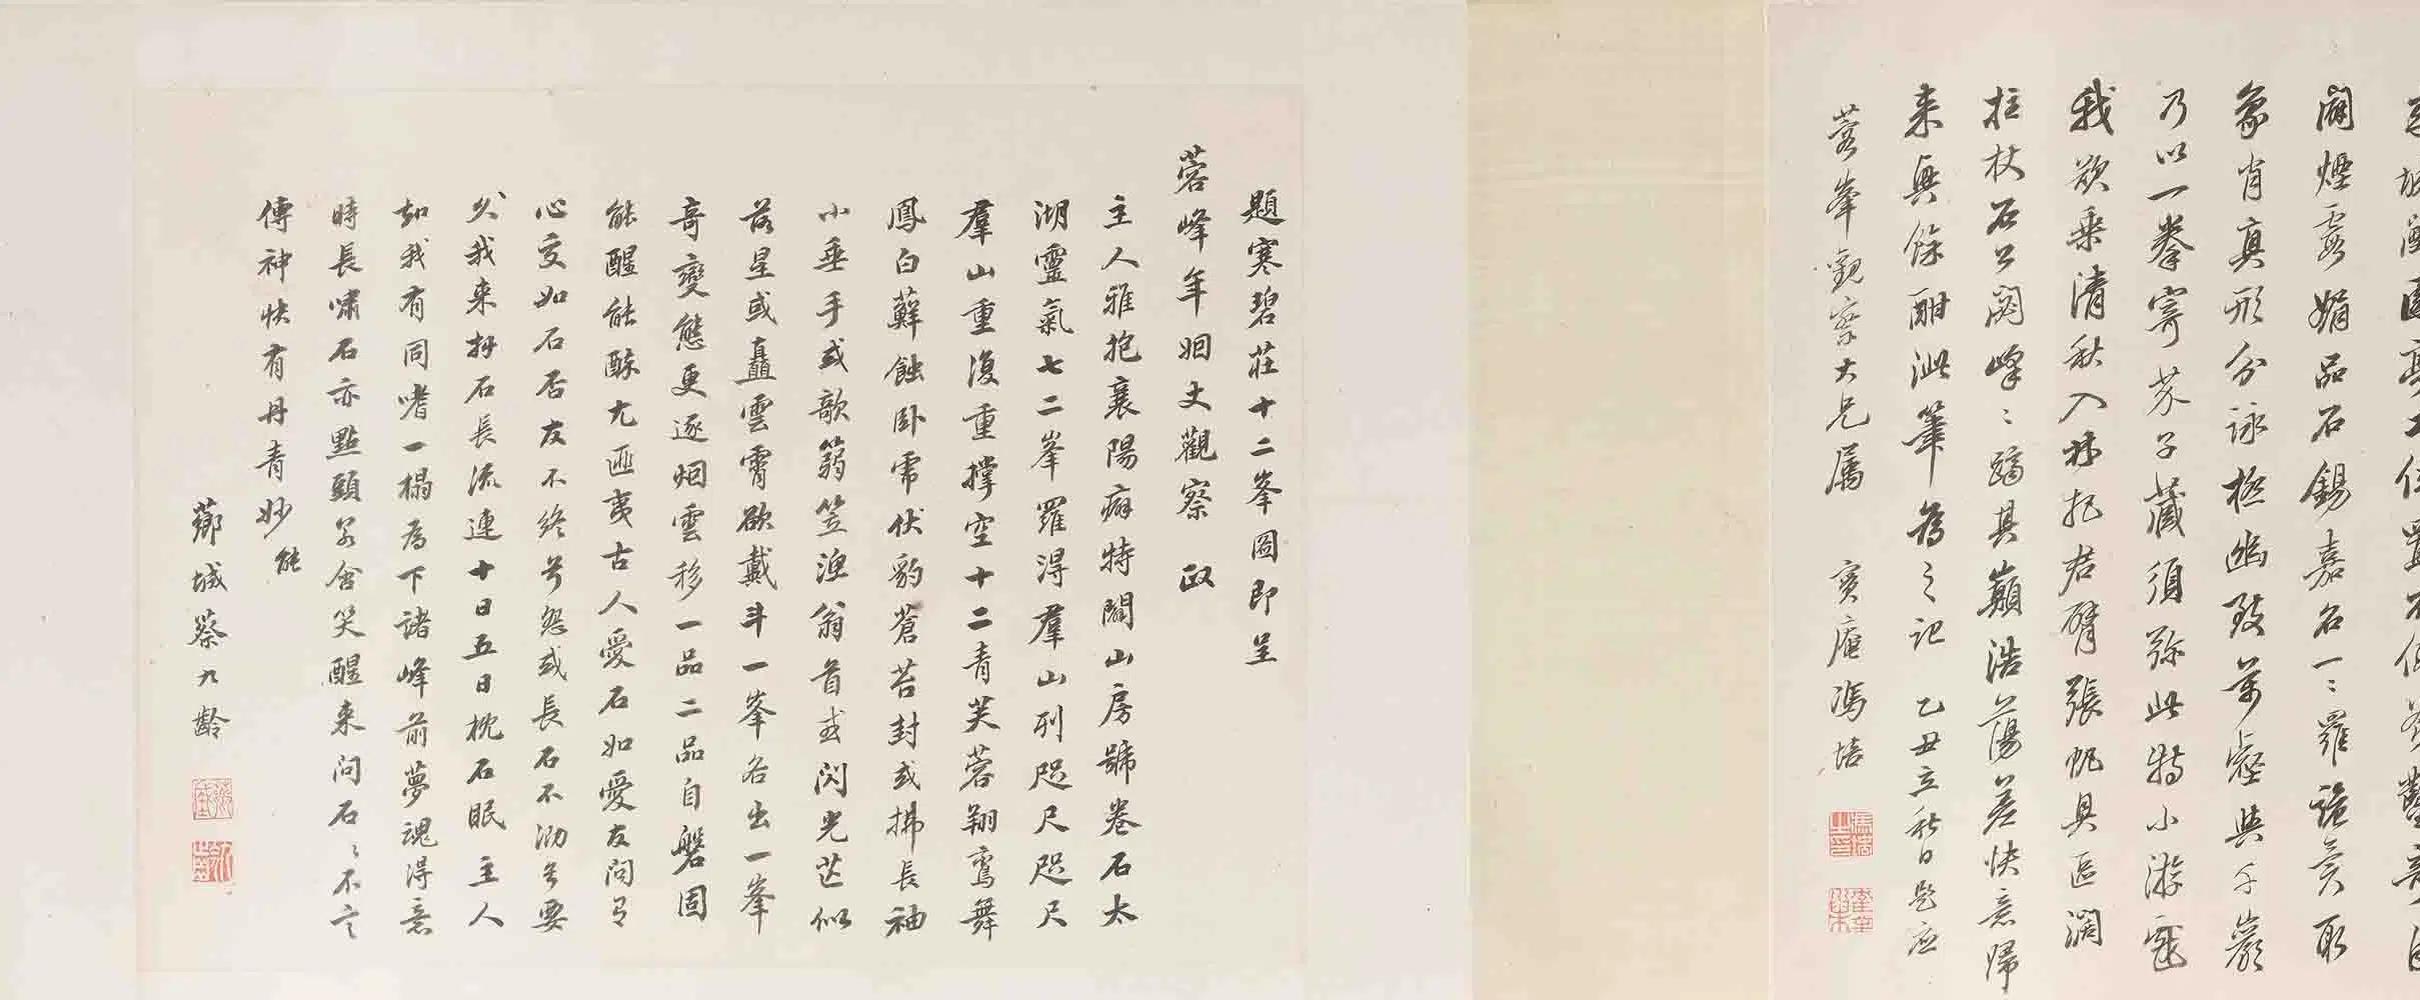 闢煙霞娟品石錫嘉名一〻羅詭异取
象肖真形分詠極幽致萬壑與千巖
乃以一拳寄芥子藏須弥此特小游戲
我欲乘清秋入林把君臂張帆具區濶
拄杖石公閟峰〻躡其巔浩蕩差快意歸
来興餘酣泚筆為之記 乙丑立秋日題应
蓉峯觀察大兄属 實庵馮培
題寒碧莊十二峯圖即呈
蓉峰年姻丈觀察 政
主人雅抱襄陽癖特闢山房號卷石太
湖靈氣七二峯羅得羣山列咫尺咫尺
羣山重復重撐空十二青芙蓉翔鸞舞
鳳白蘚蝕卧虎伏豹蒼苔封或拂長袖
小垂手或歌篛笠漁翁首或閃光芒似
落星或矗雲霄欲戴斗一峯各出一峯
奇變態更逐烟雲移一品二品自磐固
能醒能酥尤匪夷古人愛石如愛友問君
心交如石否友不終兮怨或長石不泐兮要
久我来拜石長流連十日五日枕石眠主人
知我有同嗜一榻為下諸峰前夢魂得意
時長嘯石亦點頭含笑醒来問石〻不言
傳神快有丹青妙能
薌城蔡九齡